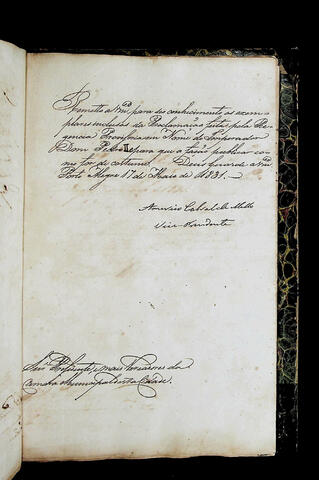 Remetto a Vmces para seo conhecimento os exem-
plares inclusos da Proclamação feita pela Re-
gencia Provisoria em Nome do Imperador
Dom Pedro 2o para que a fação publicar co-
mo for de costume. Deus Guarde a Vmces
Porto Alegre 17 de Maio de 1831.
Americo Cabral de Mello
Vice Presidente
Snrs Presidente e mais Vereadores da
Camara Municipal desta Cidade.